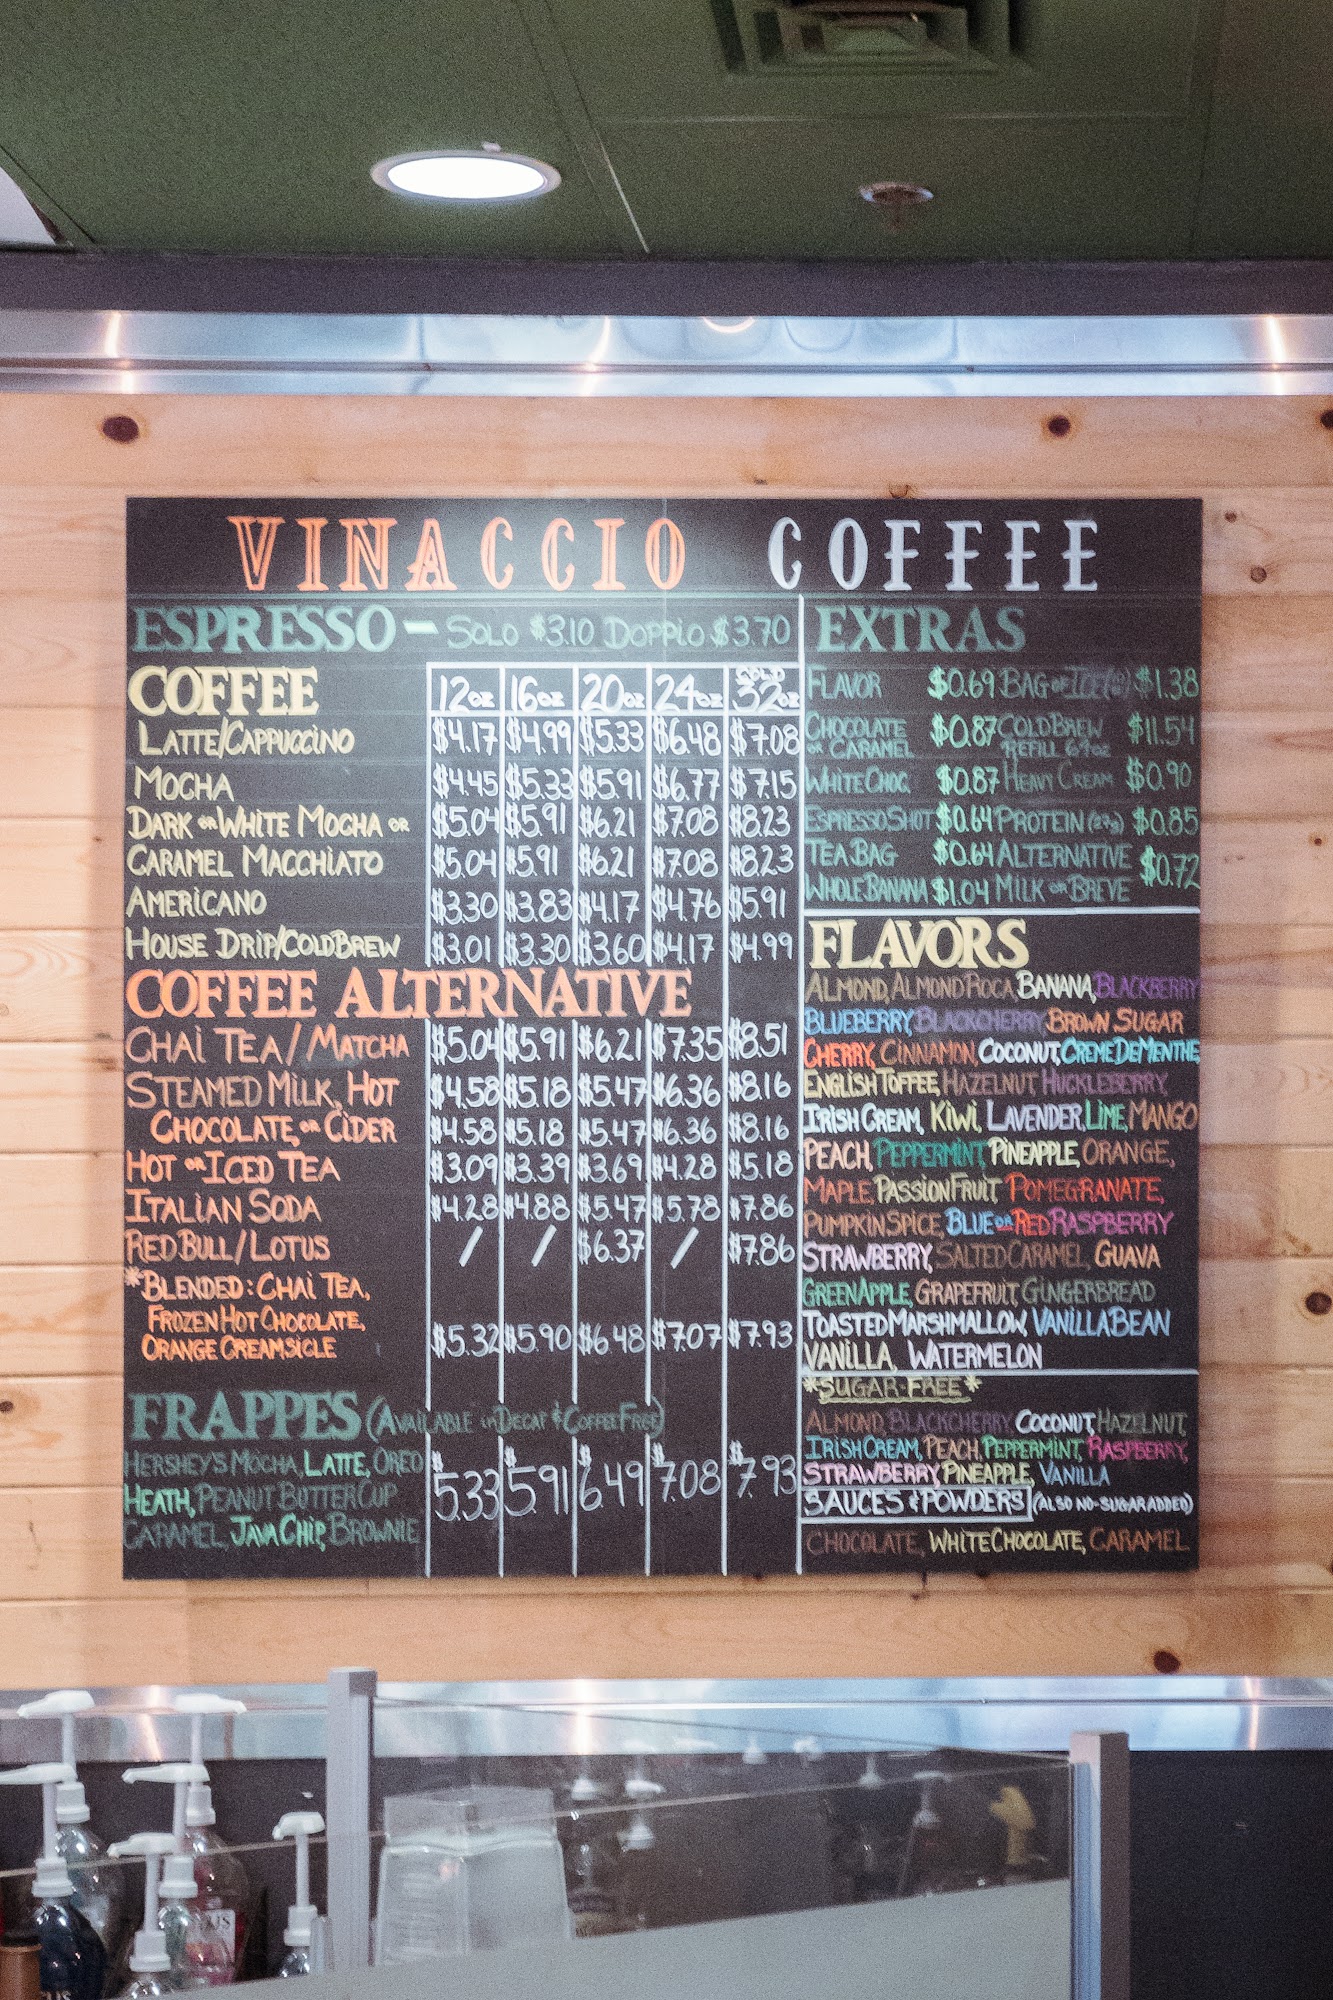 VINACCIO COFFEE
ESPRESSO - SOLO $3.10 DOPPIO $3.70
COFFEE 12oz 16oz 20oz 24oz COLD 32oz
LATTE/CAPPUCCINO $4.17 $4.99 $5.33 $6.48 $7.08
MOCHA $4.45 $5.33 $5.91 $6.77 $7.15
DARK OR WHITE MOCHA OR $5.04 $5.91 $6.21 $7.08 $8.23
CARAMEL MACCHIATO $5.04 $5.91 $6.21 $7.08 $8.23
AMERICANO $3.30 $3.83 $4.17 $4.76 $5.91
HOUSE DRIP/COLDBREW $3.01 $3.30 $3.60 $4.17 $4.99
COFFEE ALTERNATIVE
CHAI TEA/MATCHA $5.04 $5.91 $6.21 $7.35 $8.51
STEAMED MILK, HOT $4.58 $5.18 $5.47 $6.36 $8.16
CHOCOLATE, OR CIDER $4.58 $5.18 $5.47 $6.36 $8.16
HOT OR ICED TEA $3.09 $3.39 $3.69 $4.28 $5.18
ITALIAN SODA $4.28 $4.88 $5.47 $5.78 $7.86
RED BULL/LOTUS / / $6.37 / $7.86
*BLENDED: CHAI TEA,
FROZEN HOT CHOCOLATE,
ORANGE CREAMSICLE $5.32 $5.90 $6.48 $7.07 $7.93
FRAPPES (AVAILABLE IN DECAF & COFFEE FREE)
HERSHEY'S MOCHA, LATTE, OREO
HEATH, PEANUT BUTTER CUP $5.33 $5.91 $6.49 $7.08 $7.93
CARAMEL, JAVA CHIP, BROWNIE
EXTRAS
FLAVOR $0.69 BAG OF ICE $1.38
CHOCOLATE OR CARAMEL $0.87 COLDBREW REFILL 64oz $11.54
WHITE CHOC $0.87 HEAVY CREAM $0.90
ESPRESSO SHOT $0.64 PROTEIN $0.85
TEA BAG $0.64 ALTERNATIVE
WHOLE BANANA $1.04 MILK OR BREVE $0.72
FLAVORS
ALMOND, ALMOND ROCA, BANANA, BLACKBERRY
BLUEBERRY, BLACKCHERRY, BROWN SUGAR
CHERRY, CINNAMON, COCONUT, CREME DE MENTHE
ENGLISH TOFFEE, HAZELNUT, HUCKLEBERRY,
IRISH CREAM, KIWI, LAVENDER, LIME, MANGO
PEACH, PEPPERMINT, PINEAPPLE, ORANGE,
MAPLE, PASSION FRUIT, POMEGRANATE,
PUMPKIN SPICE, BLUE OR RED RASPBERRY
STRAWBERRY, SALTED CARAMEL, GUAVA
GREEN APPLE, GRAPEFRUIT, GINGERBREAD
TOASTED MARSHMALLOW, VANILLA BEAN
VANILLA, WATERMELON
*SUGAR-FREE*
ALMOND, BLACKCHERRY, COCONUT, HAZELNUT,
IRISH CREAM, PEACH, PEPPERMINT, RASPBERRY,
STRAWBERRY, PINEAPPLE, VANILLA
SAUCES & POWDERS (ALSO NO-SUGAR ADDED)
CHOCOLATE, WHITE CHOCOLATE, CARAMEL